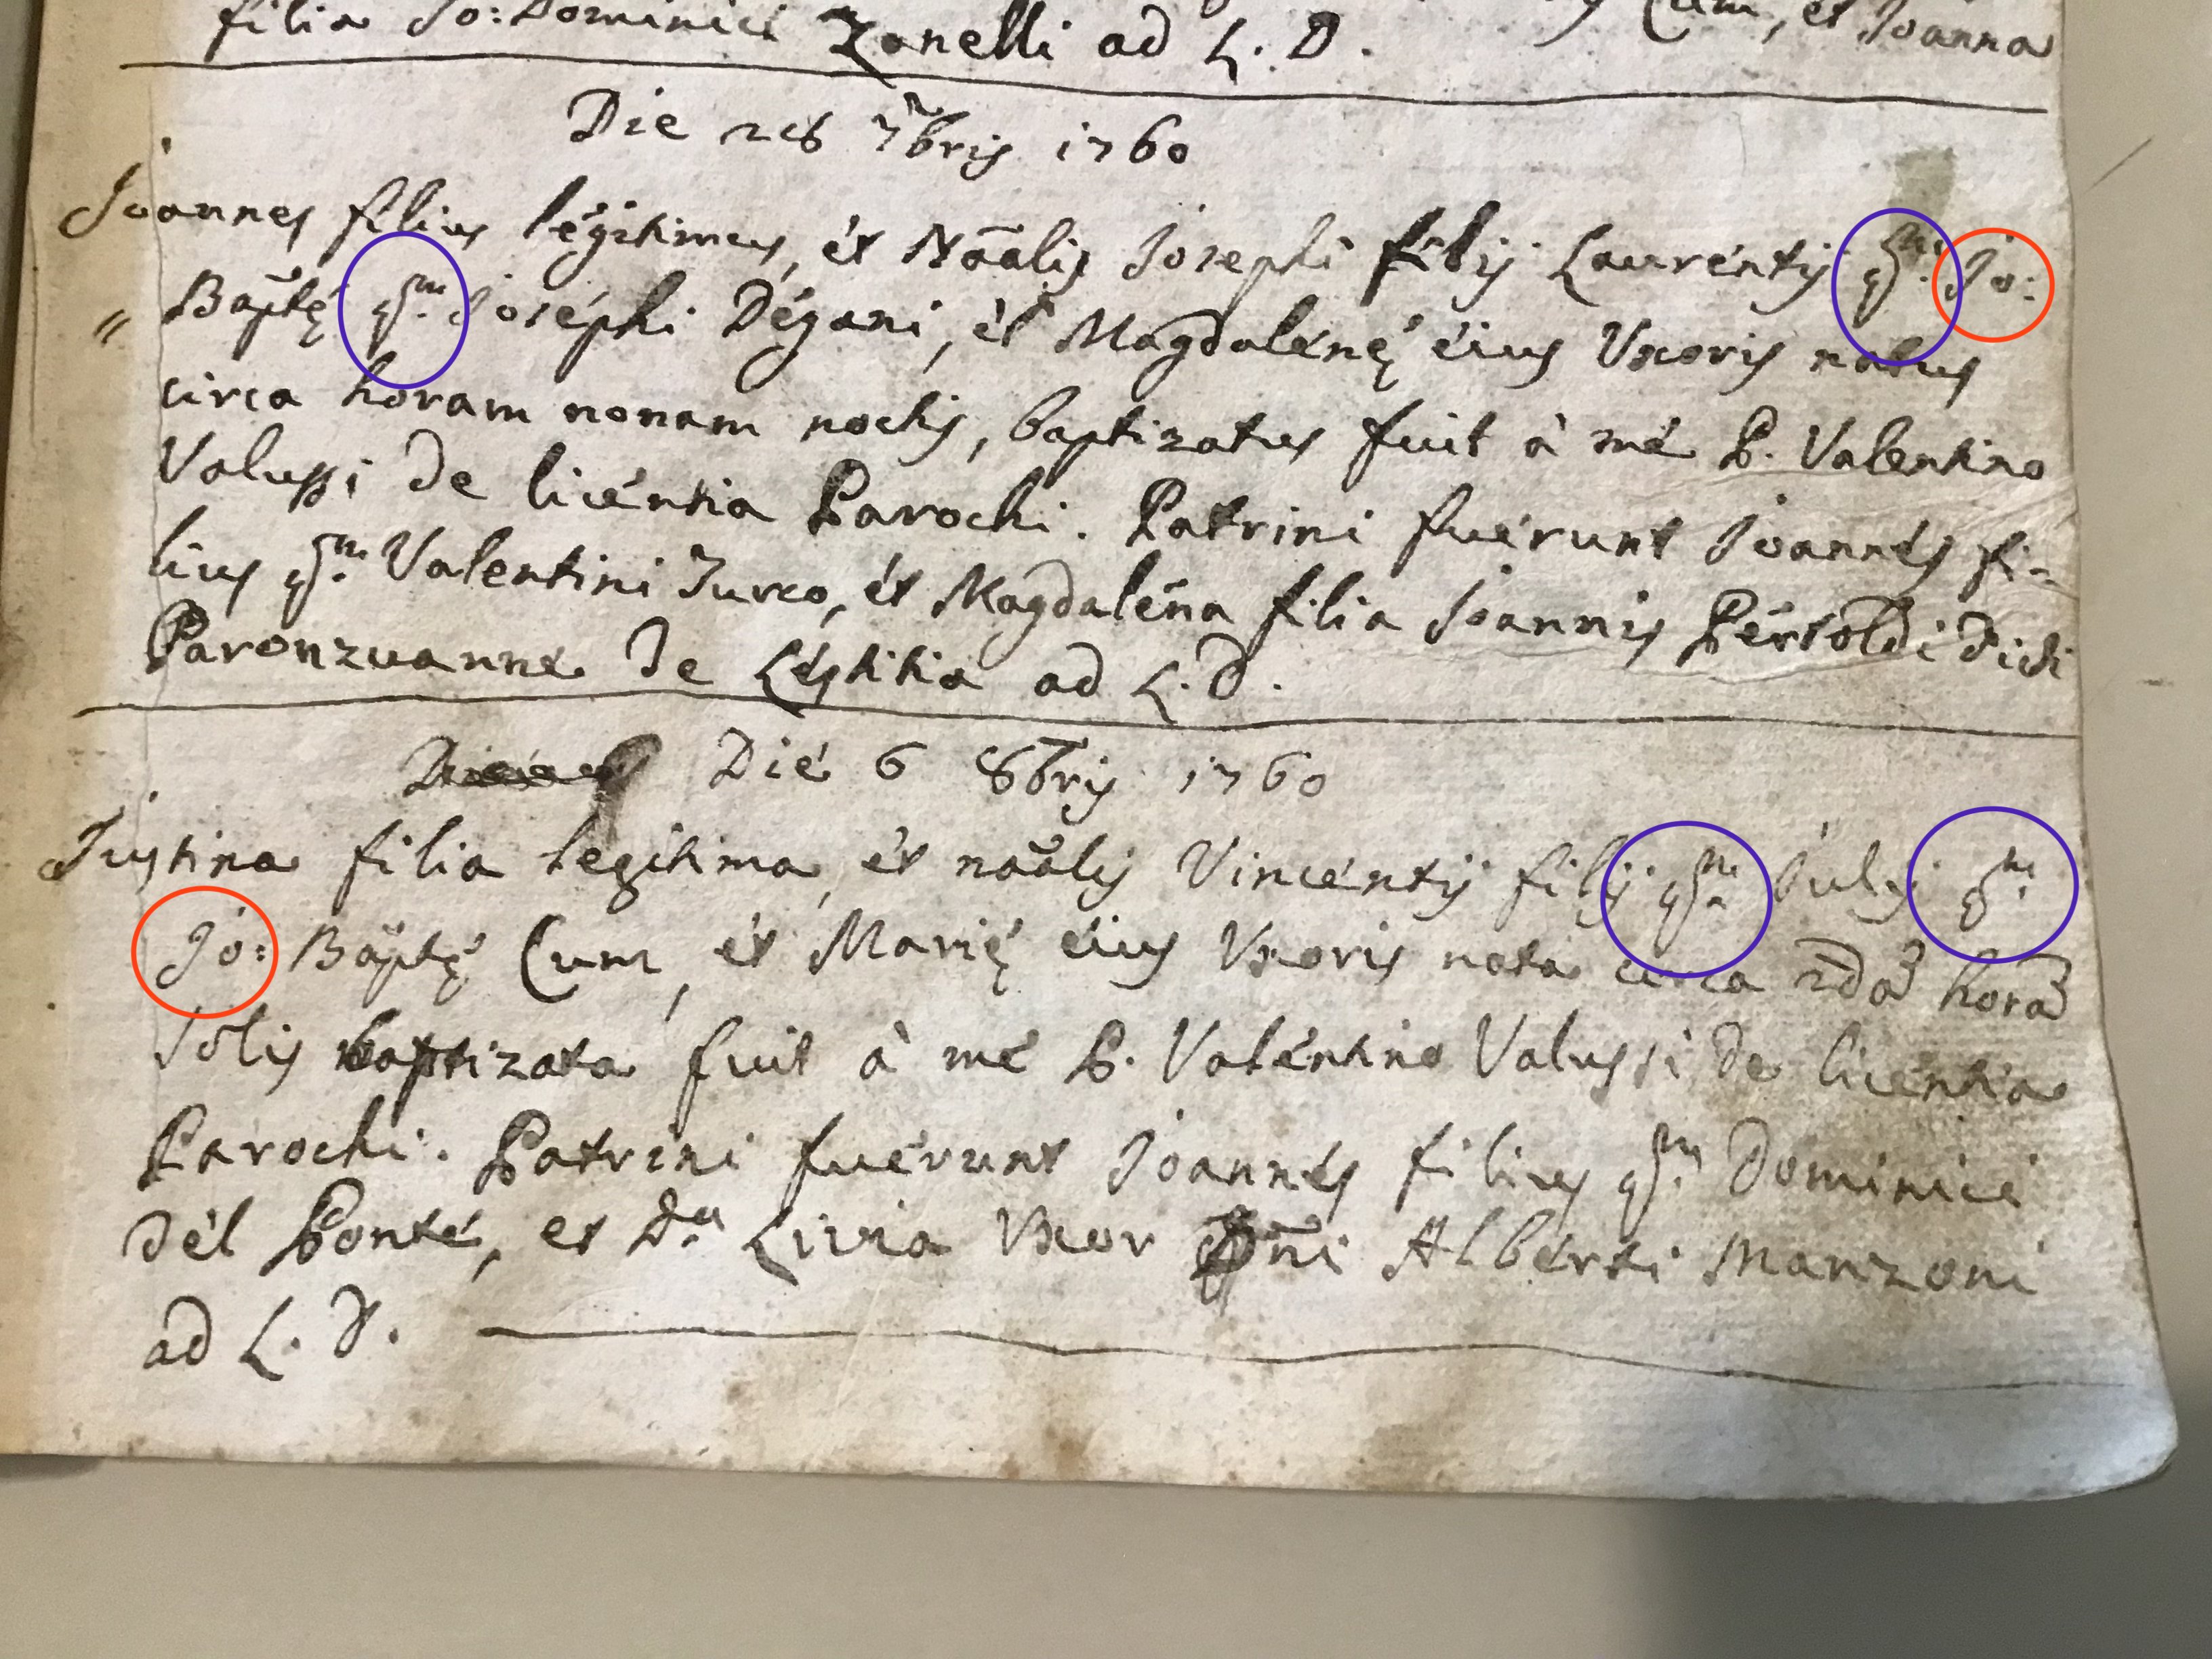 filia Jo: Dominici Zanelli ad L. D. Cum, et Joanna
Die 28 7bris 1760
Joannes filius legitimus, et Nãalis Josephi filij Laurentij qm. Jo:
Baptę qm. Josephi Degani, et Magdalenę eius Uxoris natus
circa horam nonam noctis, baptizatus fuit à me P. Valentino
Valussi de licentia Parochi. Patrini fuerunt Joannes fi-
lius qm. Valentini Turco, et Magdalena filia Joannis Pertoldi dicti
Paronzuanne de Lestitia ad L. D.
Die 6 8bris 1760
Justina filia legitima, et nãalis Vincentij filij qm. Julij qm.
Jo: Baptę Cum, et Marię eius Uxoris nata circa 2dã horã
Solis baptizata fuit à me P. Valentino Valussi de licentia
Parochi. Patrini fuerunt Joannes filius qm. Dominici
del Ponte, et Da. Livia Uxor Dñi Alberti Manzoni
ad L. D.